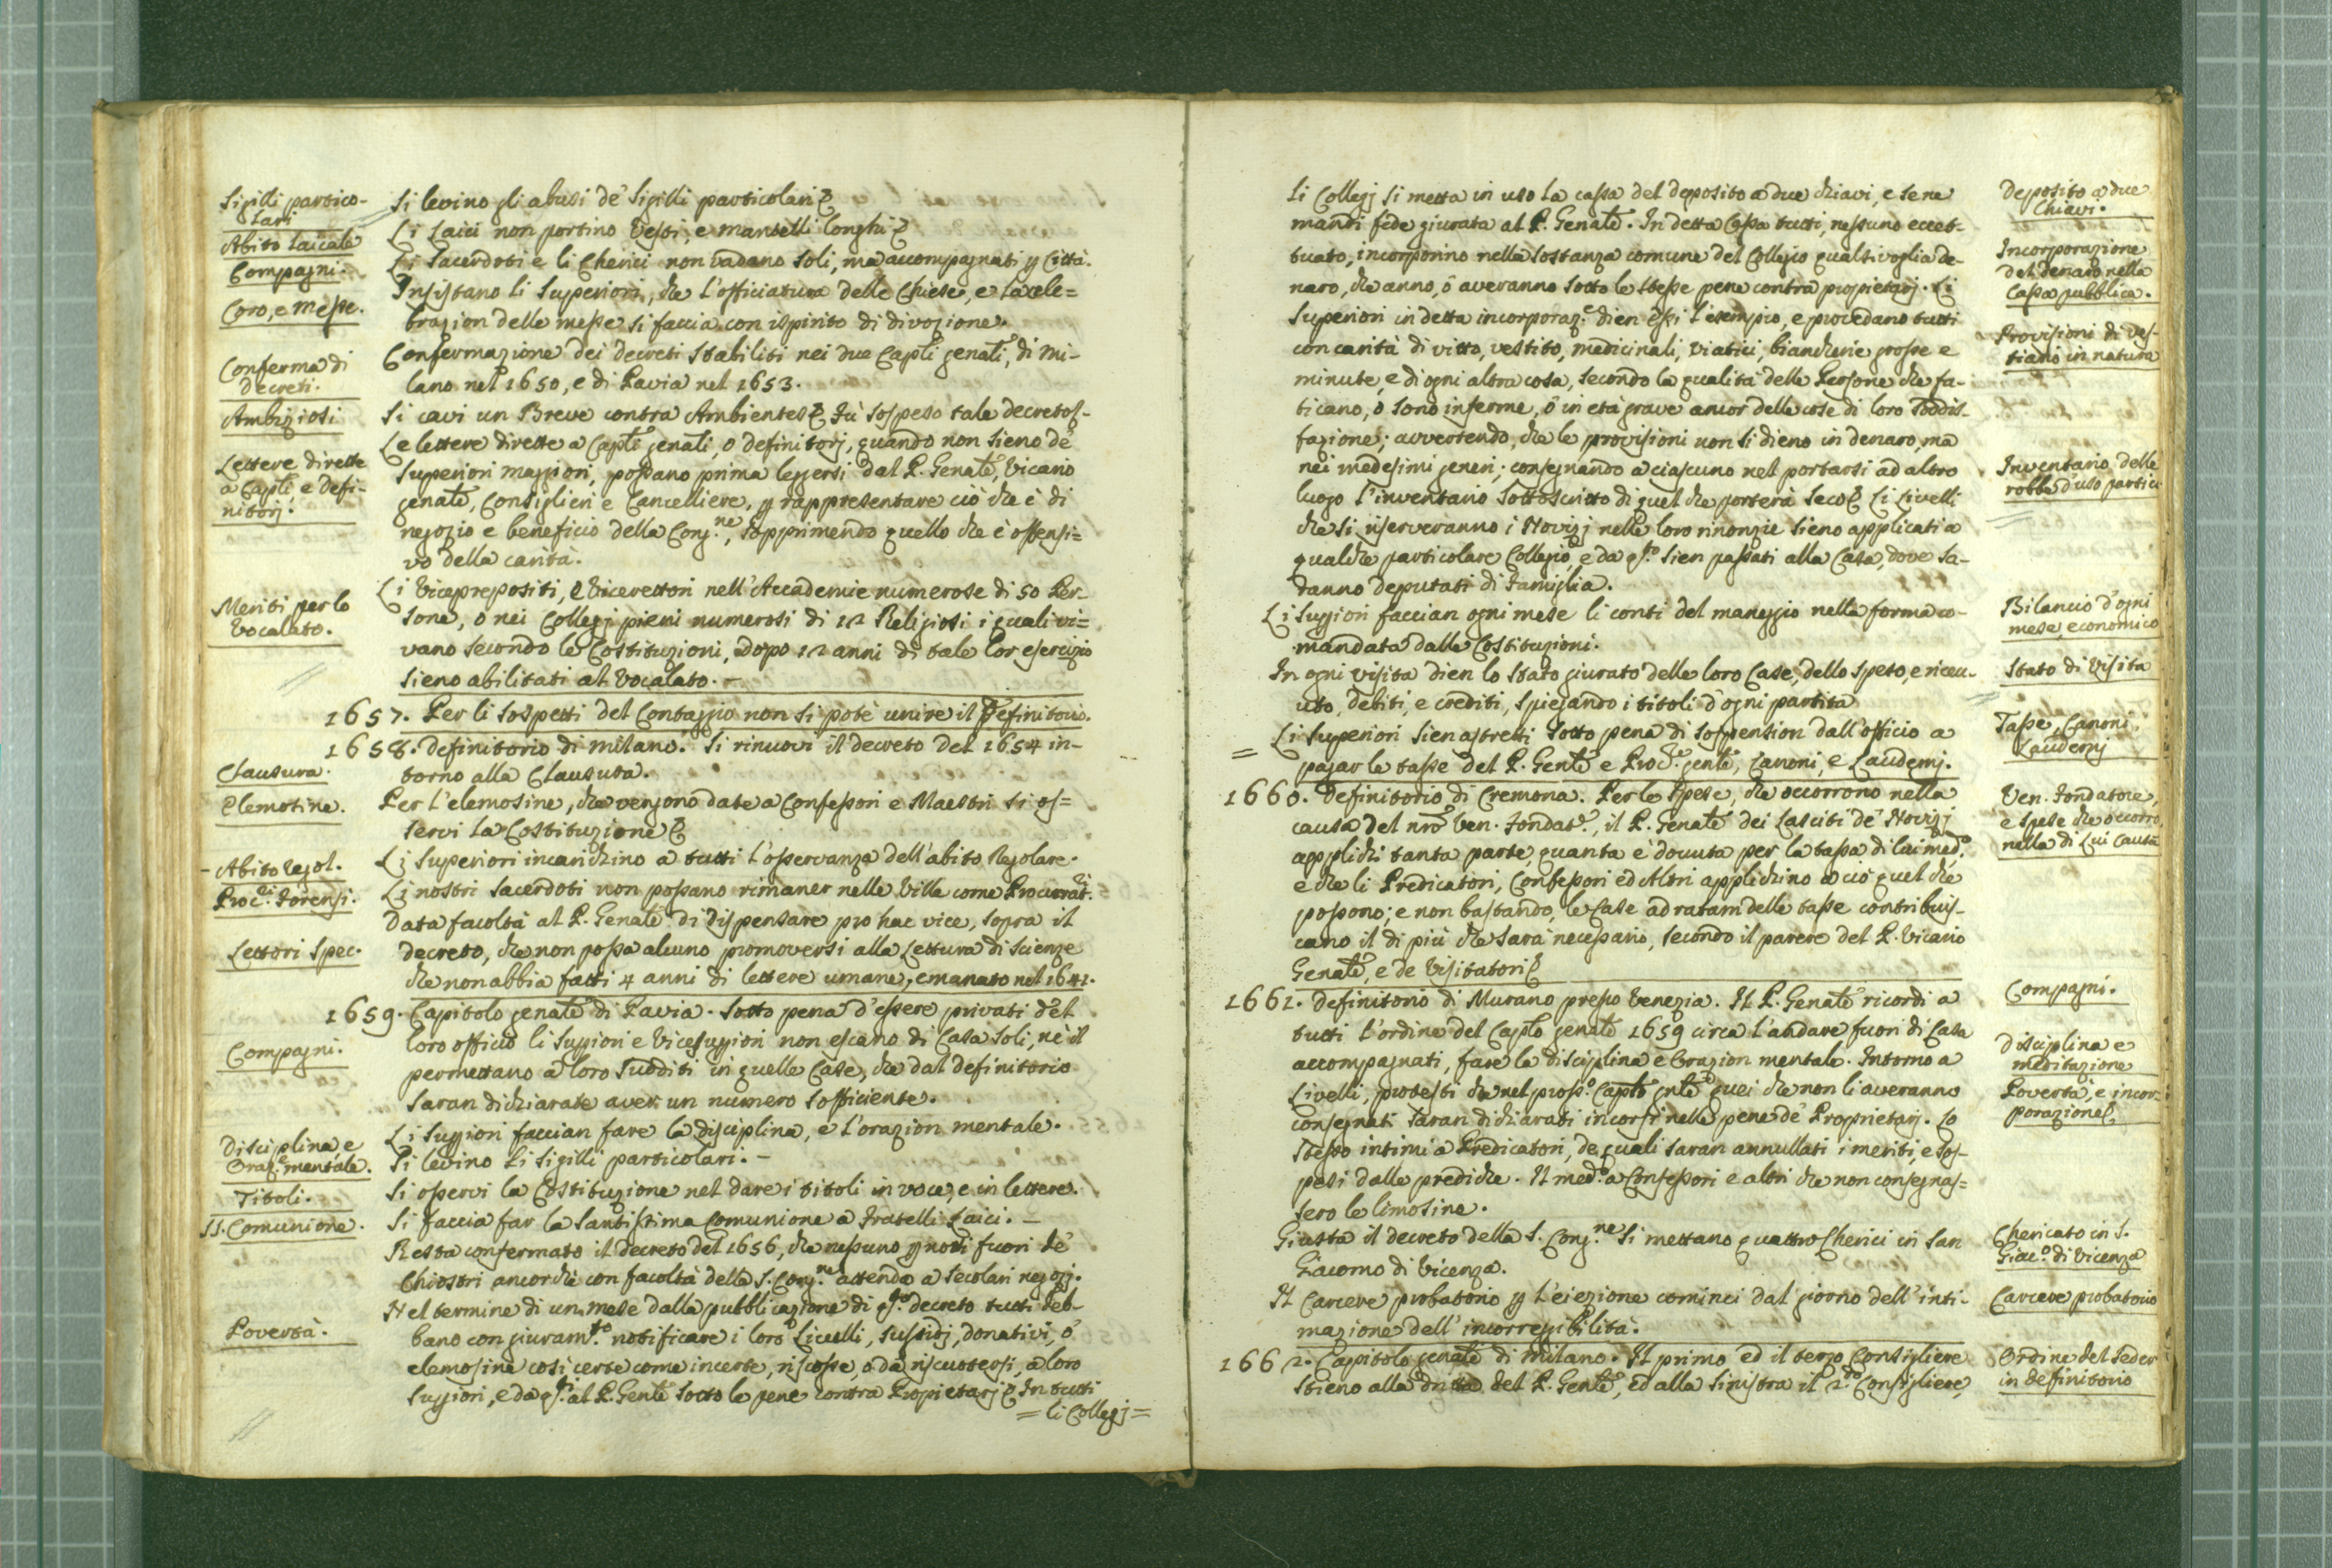 Sigilli partico-
lari
Si levino gli abusi de' Sigilli particolari &
Abito laicale
Li Laici non portino Vesti, e mantelli longhi &
Compagni.
Li Sacerdoti e li Cherici non vadano soli, ma accompagnati p Città.
Coro, e Messe.
Insistano li Superiori, che l'officiatura delle Chiese, e la cele=
brazion delle messe si faccia con ispirito di divozione.
Conferma di
decreti.
Confermazione dei decreti stabiliti nei due Capli genali, di Mi-
lano nel 1650, e di Pavia nel 1653.
Ambiziosi
Si cavi un Breve contra Ambientes & Fù sospeso tale decreto
Lettere dirette
a Capli, e defi-
nitorj.
Le lettere dirette a Capli genali, o definitorj, quando non sieno de'
Superiori maggiori, possano prima leggersi dal P. Genale, Vicario
genale, Consiglieri e Cancelliere, p rappresentare ciò che è di
negozio e beneficio della Cong.ne, sopprimendo quello che è offensi=
vo della carità.
Meriti per lo
Vocalato.
Li Viceprepositi, e Vicerettori nell'Accademie numerose di 50 Per-
sone, o nei Collegj pieni numerosi di 12 Religiosi i quali vi=
vano secondo le Costituzioni, dopo 12 anni di tale lor esercizio
sieno abilitati al Vocalato.
1657. Per li sospetti del Contaggio non si potè unire il Definitorio.
1658. Definitorio di Milano. Si rinuovi il decreto del 1654 in-
Clausura.
torno alla Clausura.
Elemosine.
Per l'elemosine, che vengono date a Confessori e Maestri si os=
servi la Costituzione &
Abito regol.
Li Superiori incarichino a tutti l'osservanza dell'abito Regolare.
Proc.ri Forensi.
Li nostri Sacerdoti non possano rimaner nelle Ville come Procurat.ri
Data facoltà al P. Genale di dispensare pro hac vice, sopra il
Lettori Spec.
decreto, che non possa alcuno promoversi alla Lettura di Scienze
che non abbia fatti 4 anni di lettere umane, emanato nel 1641.
1659. Capitolo genale di Pavia. Sotto pena d'essere privati del
Compagni.
loro officio li Suppiori e Vicesuppiori non escano di Casa soli, nè il
permettano a loro Sudditi in quelle Case, che dal definitorio
saran dichiarate aver un numero sofficiente.
Disciplina e
Oraz.e mentale.
Li Suppiori faccian fare la disciplina, e l'orazion mentale.
Si levino li sigilli particolari.
Titoli.
Si osservi la Costituzione nel dare i titoli in voce, e in lettere.
SS. Comunione.
Si faccia far la Santissima Comunione a Fratelli Laici.
Resta confermato il decreto del 1656, che nessuno pnotti fuori de'
Chiostri ancorchè con facoltà della S. Cong.ne attenda a secolari negozj.
Povertà.
Nel termine di un mese dalla pubblicazione di q.sto decreto tutti deb-
bano con giuram.to notificare i loro Livelli, sussidj, donativi, ò
elemosine così certe come incerte, riscosse, o da riscuotersi, a loro
Suppiori, e da q.sti al P. Genle sotto le pene contra Propietarj & In tutti
= li Collegj =
li Collegj si metta in uso la cassa del deposito a due chiavi, e se ne
Deposito a due
Chiavi.
mandi fede giurata al P. Genale. In detta Cassa tutti, nessuno eccet-
tuato, incorporino nella sostanza comune del Collegio qualsivoglia de-
Incorporazione
del denaro nella
Cassa pubblica.
naro, che anno, ò averanno sotto le stesse pene contra propietarj. Li
Superiori in detta incorporaz.e dien essi l'esempio, e provedano tutti
Provisioni di ves-
tiario in natura
con carità di vitto, vestito, medicinali, viatici, biancherie grosse e
minute, e di ogni altra cosa, secondo la qualità delle Persone che fa-
ticano, ò sono inferme, ò in età grave ancor delle cose di loro soddis-
fazione; avvertendo, che le provisioni non si dieno in denaro, ma
nei medesimi generi; consegnando a ciascuno nel portarsi ad altro
Inventario delle
robbe d'uso partic
luogo l'inventario sottoscritto di quel che porterà seco & Li Livelli
che si riserveranno i Novizj nelle loro rinonzie sieno applicati a
qualche particolare Collegio, e da q.sto sien passati alla Casa, dove sa-
ranno deputati di Famiglia.
Li Suppiori faccian ogni mese li conti del maneggio nella forma co-
Bilancio d'ogni
mese economico
mandata dalle Costituzioni.
In ogni visita dien lo Stato giurato delle loro Case, dello speso, e ricev-
Stato di Visita
uto, debiti, e crediti, spiegando i titoli d'ogni partita
Tasse, Canoni,
Laudemj
= Li Superiori sien astretti sotto pena di sospension dall'officio a
pagar le tasse del P. Genle e Proc.re genle, Canoni, e Laudemj.
1660. Definitorio di Cremona. Per le spese, che occorrono nella
Ven. Fondatore,
e spese che occorro
nella di Lui Causa
causa del nro Ven. Fondat.e, il P. Genale dei Lasciti de' Novizj
applichi tanta parte, quanta è dovuta per la tassa di lui med.o
e che li Predicatori, Confessori ed Altri applichino a ciò quel che
possono; e non bastando, le Case ad ratam delle tasse contribuis-
cano il di più che sarà necessario, secondo il parere del P. Vicario
Genale, e de Visitatori &
1661. Definitorio di Murano presso Venezia. Il P. Genale ricordi a
Compagni.
tutti l'ordine del Caplo genale 1659 circa l'andare fuori di Casa
Disciplina e
meditazione
accompagnati, fare la disciplina e Orazion mentale. Intorno a
Livelli, protesti che nel pross.o Caplo gnle quei che non li averanno
Povertà, e incor-
porazione &
consegnati saran dichiarati incorsi nelle pene de' Proprietarj. Lo
stesso intimi a Predicatori, de quali saran annullati i meriti, e sos-
pesi dalle prediche. Il med.o a Confessori e altri che non consegnas=
sero le limosine.
Giusta il decreto della S. Cong.ne si mettano quattro Cherici in San
Chericato in S.
Giac.o di Vicenza
Giacomo di Vicenza.
Il Carcere probatorio p l'eiezione cominci dal giorno dell'inti-
Carcere probatorio
mazione dell'incorregibilità.
1662. Capitolo genale di Milano. Il primo ed il terzo Consigliere
Ordine del seder
in definitorio
stieno alla dritta del P. Genle, ed alla sinistra il 2.do Consigliere,